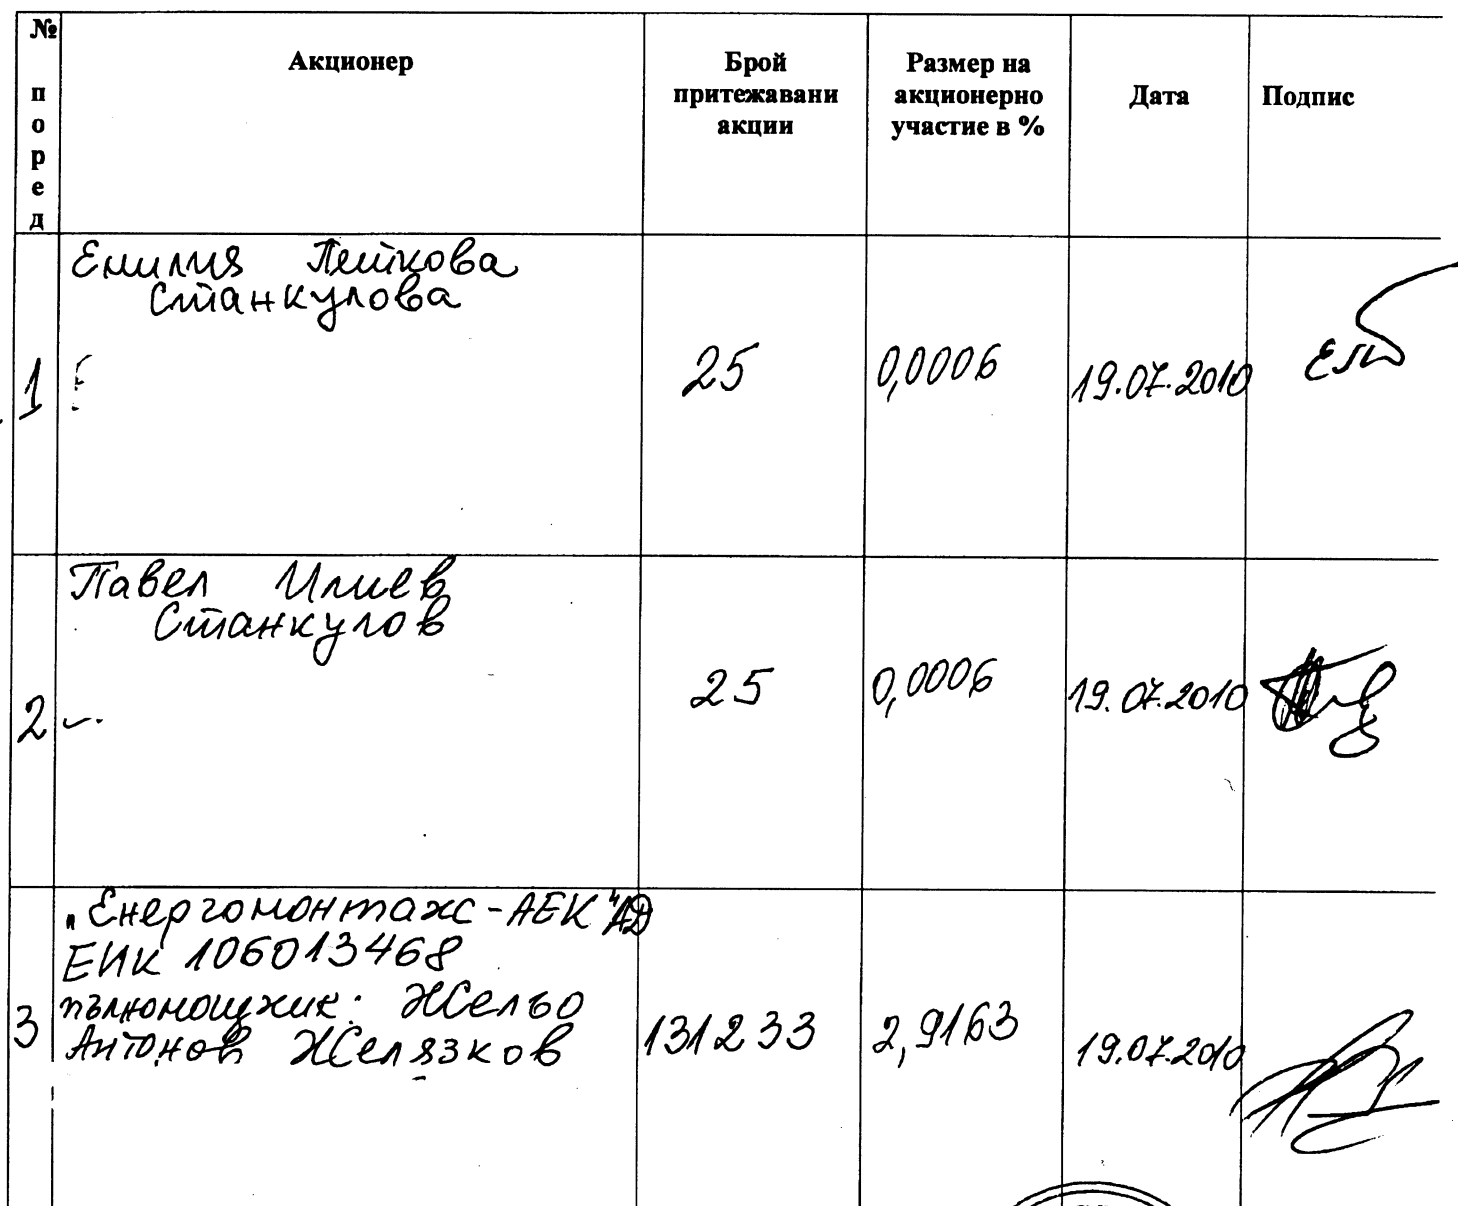 № поред
Акционер
Брой
притежавани
акции
Размер на
акционерно
участие в %
Дата
Подпис
Емилия Пейкова
Станкулова
1
25
0,0006
19.07.2010
Павел Илиев
Станкулов
2
25
0,0006
19.07.2010
„Енергомонтаж-АЕК" АД
ЕИК 106013468
пълномощник: Жельо
Антонов Желязков
3
131233
2,9163
19.07.2010